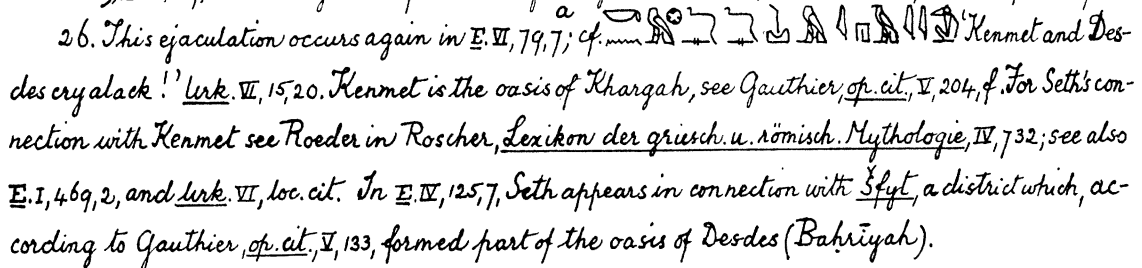 26. This ejaculation occurs again in E. VI, 79, 7; cf. a 'Kenmet and Des-
des cry alack!' Urk. VI, 15, 20. Kenmet is the oasis of Khargah, see Gauthier, op. cit., V, 204, f. For Seth's con-
nection with Kenmet see Roeder in Roscher, Lexikon der griesch. u. römisch. Mythologie, IV, 732; see also
E. I, 469, 2, and Urk. VI, loc. cit. In E. IV, 125, 7, Seth appears in connection with Šfyt, a district which, ac-
cording to Gauthier, op. cit., V, 133, formed part of the oasis of Desdes (Baḥrīyah).